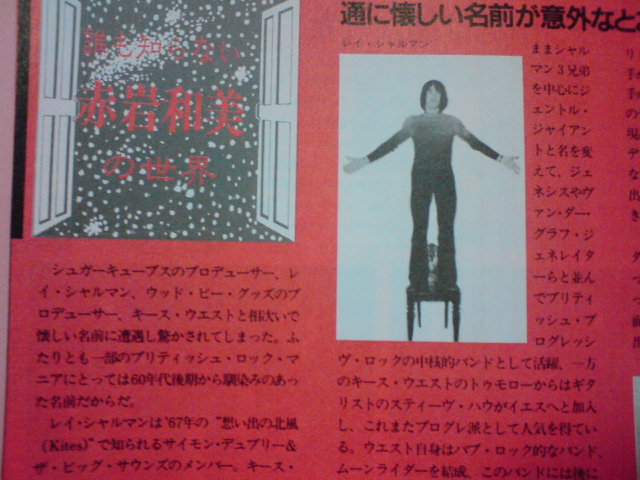 通に懐しい名前が意外なと
誰も知らない
赤岩和美
の世界
レイ・シャルマン
シュガーキューブスのプロデューサー、レ
イ・シャルマン、ウッド・ビー・グッズのプ
ロデューサー、キース・ウエストと相次いで
懐しい名前に遭遇し驚かされてしまった。ふ
たりとも一部のブリティッシュ・ロック・マ
ニアにとっては60年代後期から馴染みのあっ
た名前だからだ。
レイ・シャルマンは'67年の“想い出の北風
(Kites)”で知られるサイモン・デュプリー&
ザ・ビッグ・サウンズのメンバー。キース・
ままシャル
マン3兄弟
を中心にジ
ェントル・
ジャイアン
トと名を変
えて、ジェ
ネシスやヴ
ァン・ダー・
グラフ・ジ
ェネレイタ
ーらと並ん
でブリティ
ッシュ・プ
ログレッシ
ヴ・ロックの中核的バンドとして活躍、一方
のキース・ウエストのトゥモローからはギタ
リストのスティーヴ・ハウがイエスへと加入
し、これまたプログレ派として人気を得てい
る。ウエスト自身はパブ・ロック的なバンド、
ムーンライダーを結成、このバンドには後に